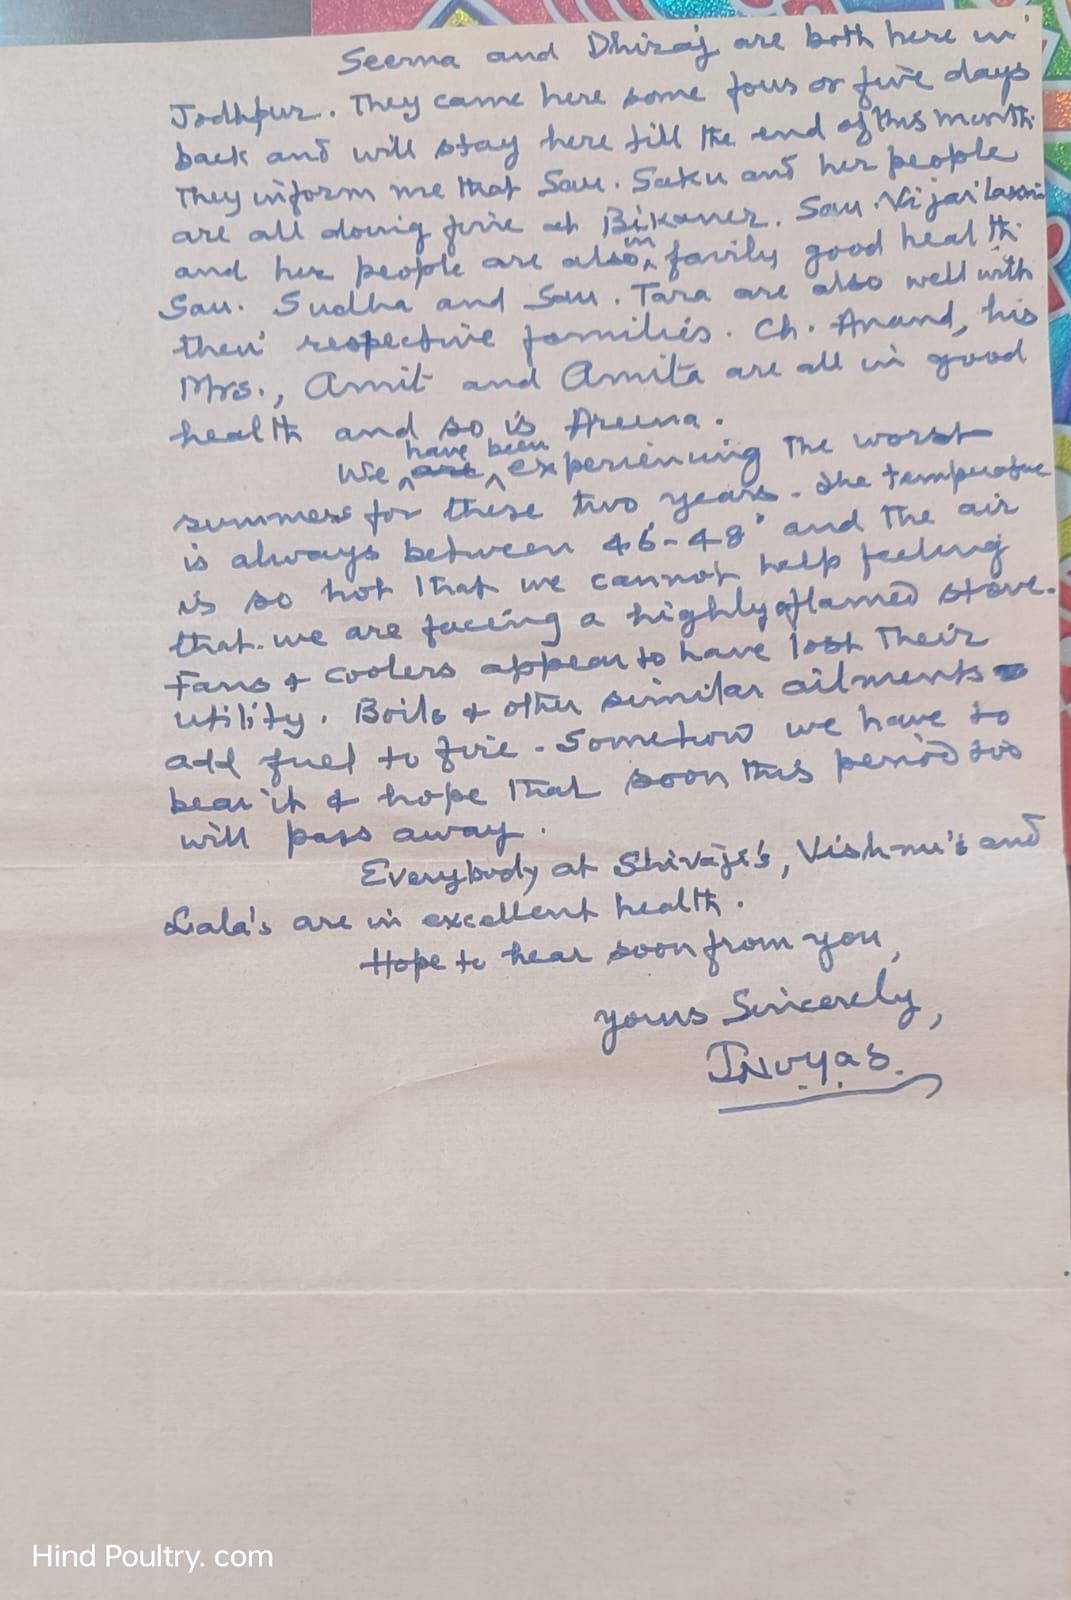 Seema and Dhiraj are both here in
Jodhpur. They came here some four or five days
back and will stay here till the end of this month.
They inform me that Sau. Saku and her people
are all doing fine at Bikaner. Sau. Vijai Laxmi
and her people are also in fairly good health.
Sau. Sudha and Sau. Tara are also well with
their respective families. Ch. Anand, his
Mrs., Amit and Amita are all in good
health and so is Aruna.
We have been experiencing the worst
summer for these two years. The temperature
is always between 46-48° and the air
is so hot that we cannot help feeling
that we are facing a highly aflamed stove.
Fans & coolers appear to have lost their
utility. Boils & other similar ailments
add fuel to fire. Somehow we have to
bear it & hope that soon this period too
will pass away.
Everybody at Shivaji's, Vishnu's and
Lala's are in excellent health.
Hope to hear soon from you,
yours Sincerely,
JNVyas.
Hind Poultry. com